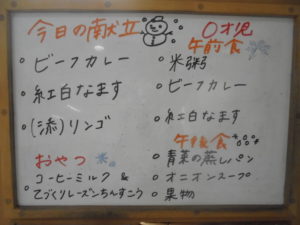 今日の献立
・ビーフカレー
・紅白なます
・(添)リンゴ
おやつ
コーヒーミルク &
てづくりレーズンちんすこう
0才児
午前食
・米粥
・ビーフカレー
・紅白なます
午後食
・青菜の蒸しパン
・オニオンスープ
・果物